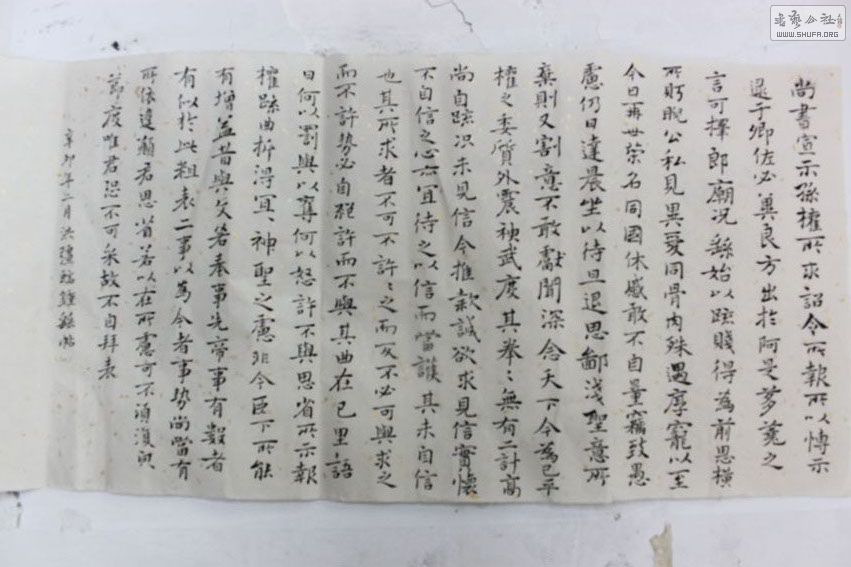 尚書宣示孫權所求詔令所報所以博示
逮于卿佐必冀良方出於阿是芻蕘之
言可擇郎廟況繇始以疏賤得為前恩橫
所盱睨公私見異愛同骨肉殊遇厚寵以至
今日再世榮名同國休慼敢不自量竊致愚
慮仍日達晨坐以待旦退思鄙淺聖意所
棄則又割意不敢獻聞深念天下今為已平
權之委質外震神武度其拳〻無有二計高
尚自疏況未見信今推款誠欲求見信實懷
不自信之心亦宜待之以信而當護其未自信
也其所求者不可不許〻之而反不必可與求之
而不許勢必自絕許而不與其曲在己里語
曰何以罰與以奪何以怒許不與思省所示報
權疏曲折得宜〻神聖之慮非今臣下所能
有增益昔與文若奉事先帝事有數者
有似於此粗表二事以為今者事勢尚當有
所依違願君思省若以在所慮可不須復皃
節度唯君恐不可采故不自拜表
辛卯年二月洪
書藝公社
WWW.SHUFA.ORG